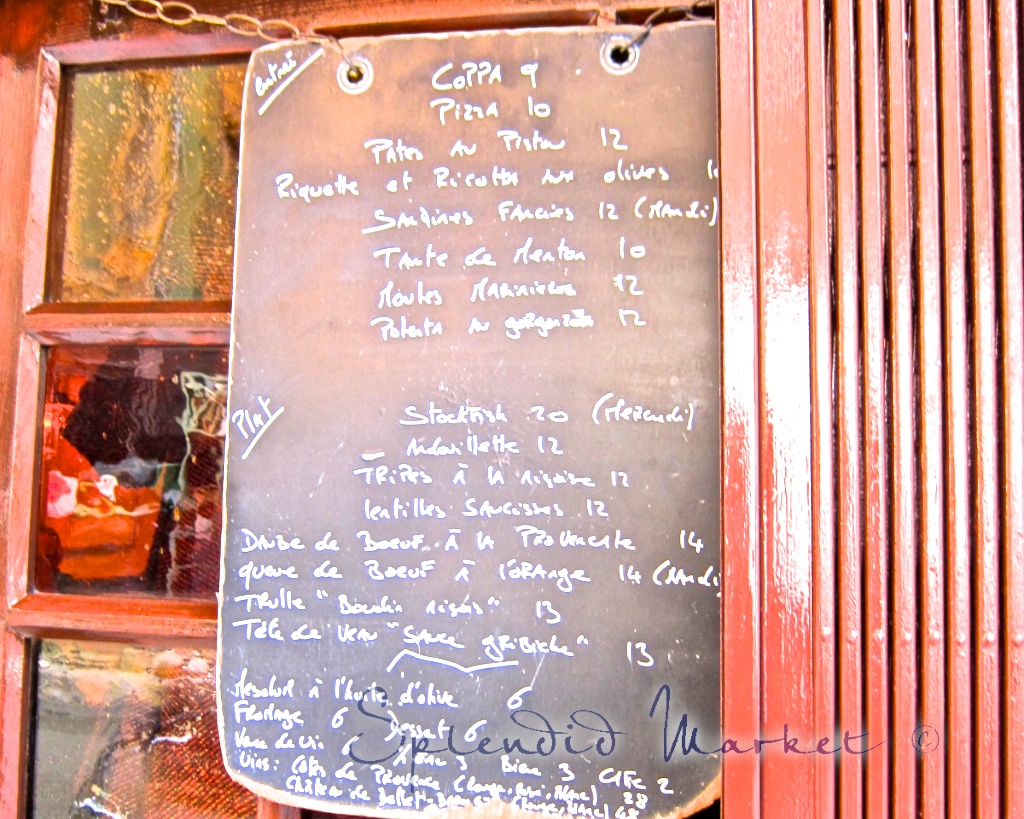 Entrée
Coppa 9
Pizza 10
Pates au Pistou 12
Riquette et Ricotta aux olives
Sardines Farcies 12 (Mardi)
Tarte de Menton 10
Moules Marinieres 12
Polenta au gorgonzola 12
Plat
Stockfish 20 (Mercredi)
Andouillette 12
TRIPES à la niçoise 12
lentilles saucisses 12
Daube de Boeuf à la Provencale 14
queue de Boeuf à l'orange 14 (Mardi
Trulle "Boudin niçois" 13
Tête de veau "sauce gribiche" 13
Mesclun à l'huile d'olive 6
Fromage 6 Dessert 6
Verre de vin 6 3 Biere 3 CAFE 2
Vins: Cotes de Provence (Rouge, Rosé, Blanc) 28
Château de Bellet (Rouge, Blanc) 48
Splendid Market ©